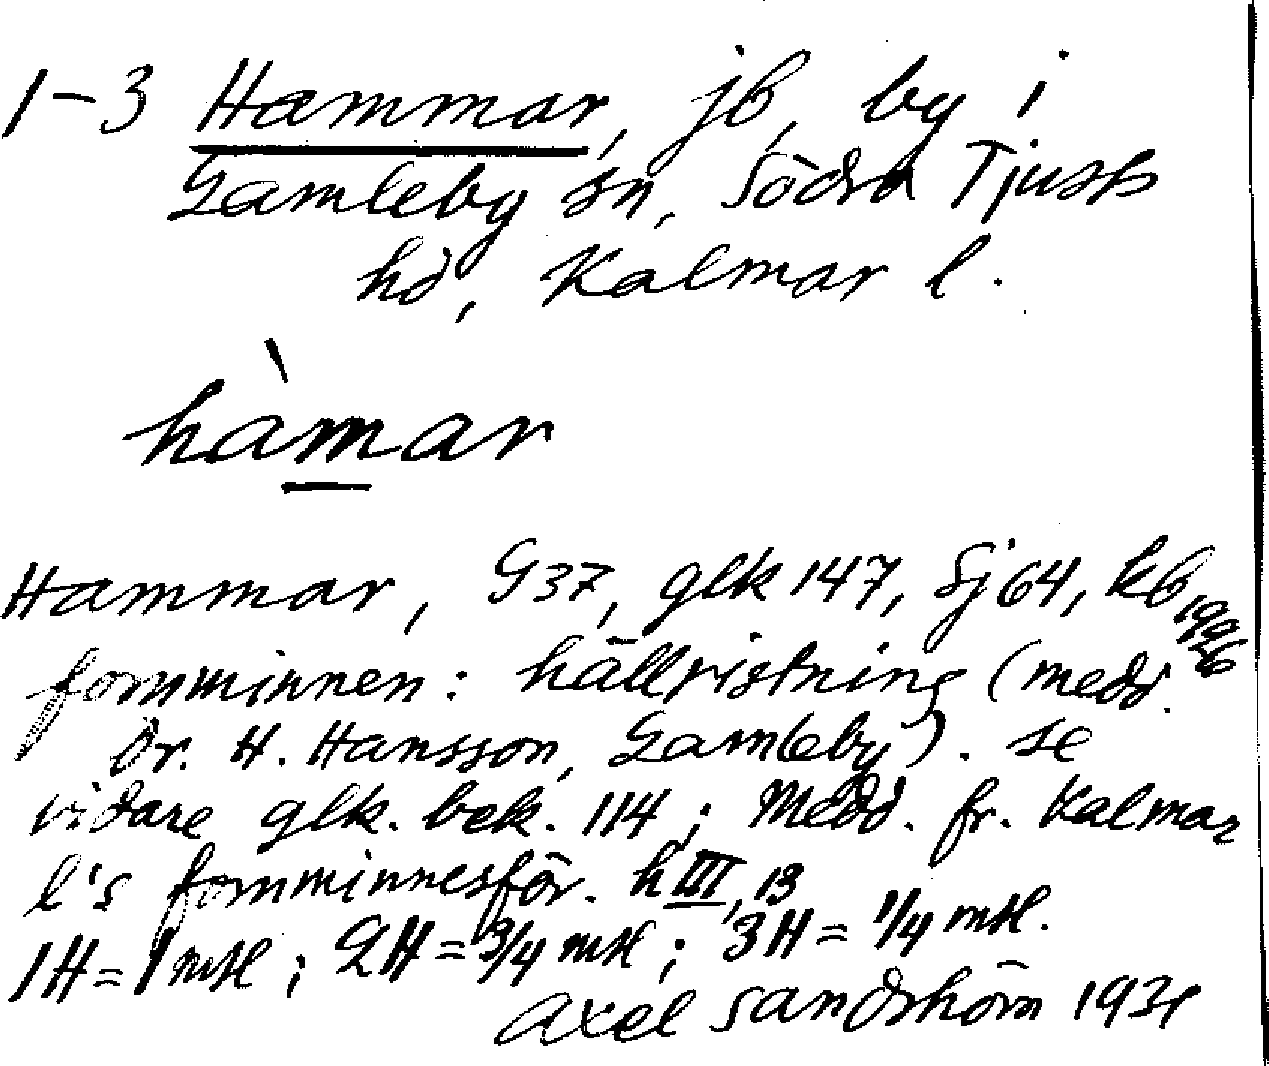 1-3 Hammar, jb, by i
Gamleby sn, Södra Tjusts
hd, Kalmar l.
hàmar
Hammar, G37, glk 147, Sj64, kb 1926
fornminnen: hällristning (medd.
Dr. H. Hansson, Gamleby). se
vidare glk. bek. 114; Medd. fr. Kalmar
l's fornminnesför. h III, 13
1H = 1 mtl; 2H = 3/4 mtl; 3H = 1/4 mtl.
Axel Sandström 1931